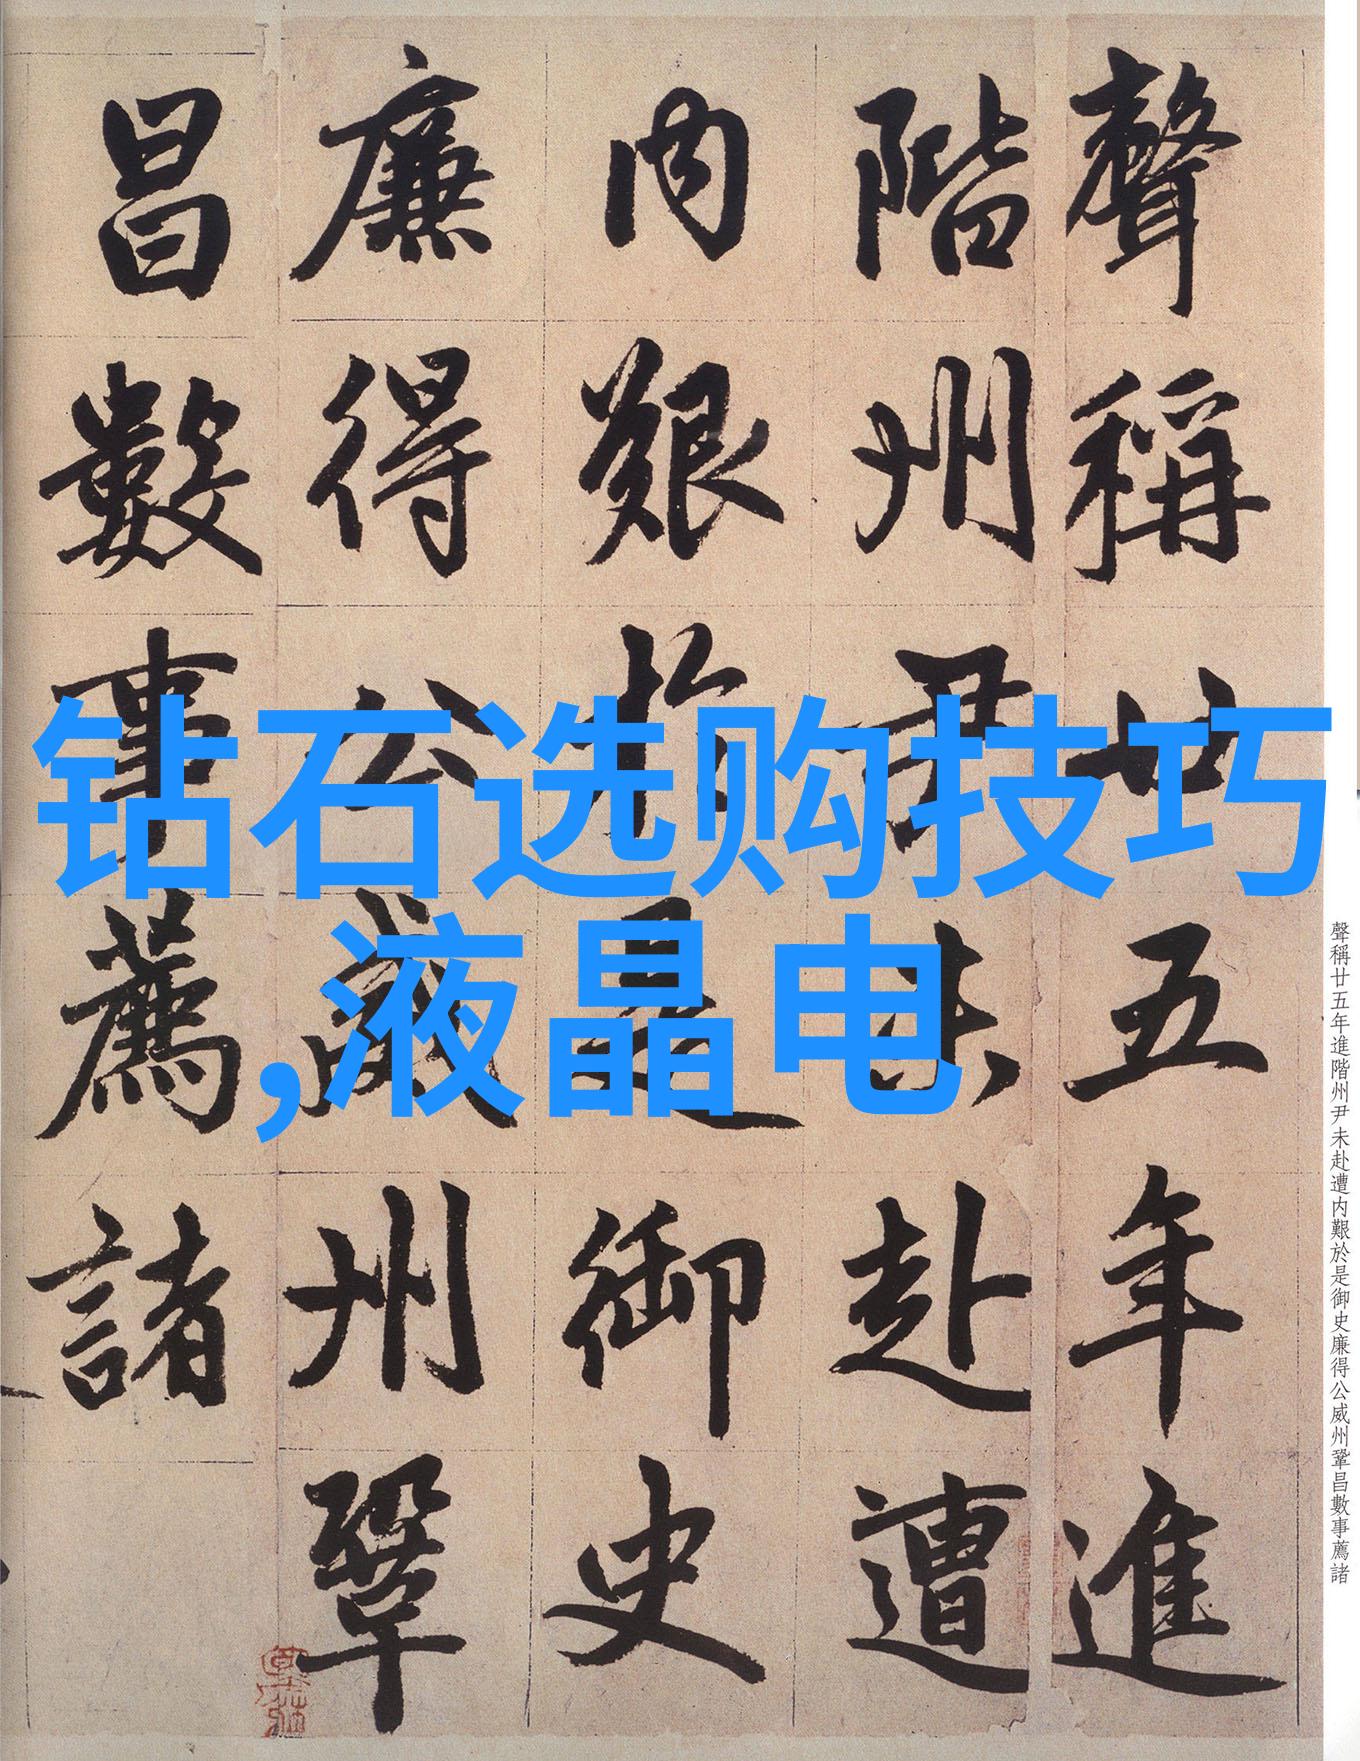 聲稱廿五年進
階州尹未赴遭
内艱於是御史
廉得公威州鞏
昌數事薦諸
钻石选购技巧
,液晶电
聲稱廿五年進階州尹未赴遭内艱於是御史廉得公威州鞏昌數事薦諸